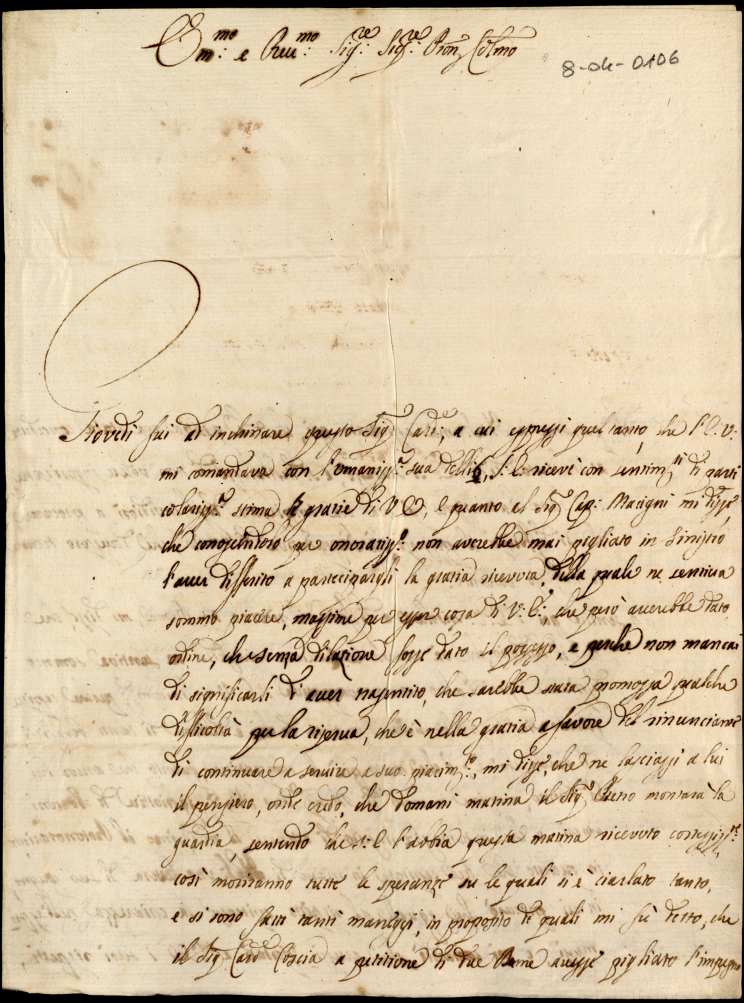 Em.mo e Reu.mo Sig.re Sig.re Pron Col.mo
8-04-0106
Giovedi fui ad inchinare questo Sig.r Card:, a cui espressi quel tanto, che l'E. V:
mi comandava con l'umaniss.a sua delli 6, S: E: ricevè con sentim.ti di parti
colariss.a stima le gratie di V E, e quanto al Sig.r Cap: Macigni mi disse,
che conoscendolo per onoratiss.o non averebbe mai pigliato in sinistro
l'auer differito a partecipargli la gratia riceuuta, della quale ne sentiua
sommo piacere, massime per esser cosa di V: E:, che però auerebbe dato
ordine, che senza dilatione fosse dato il possesso, e perche non mancai
di significarli d'auer risentito, che sarebbe stata promossa qualche
difficoltà per la riserua, che è nella gratia a fauore del rinunciante
di continuare a seruire a suo piacim.to, mi disse, che ne lasciassi a lui
il pensiero, onde credo, che domani matina il Sig.r Pietro montarà la
guardia, sentendo che S: E l'abbia questa matina riceuuto cortesiss.e,
così moriranno tutte le speranze su le quali si è ciarlato tanto,
e si sono fatti tanti maneggi, in proposito de quali mi fù detto, che
il Sig.r Card Coscia a petitione di due Dame auesse pigliato l'impegno